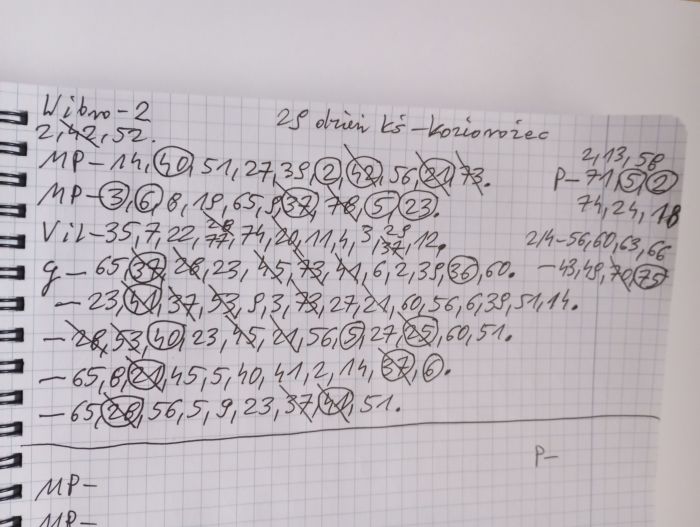 Wibro-2
29 dzień kś - koziorożec
2, 42, 52.
2, 13, 58
MP - 14, 40, 51, 27, 39, 2, 42, 56, 21, 73.
P - 71, 5, 2
MP - 3, 6, 8, 19, 65, 9, 37, 78, 5, 23.
74, 24, 18
Vil - 35, 7, 22, 77, 74, 20, 11, 4, 3, 29, 37, 12.
2/4 - 56, 60, 63, 66
g - 65, 37, 28, 23, 45, 73, 41, 6, 2, 39, 36, 60.
- 43, 49, 70, 75
- 23, 41, 37, 53, 9, 3, 73, 27, 21, 60, 56, 6, 39, 51, 14.
- 28, 53, 40, 23, 45, 21, 56, 5, 27, 25, 60, 51.
- 65, 8, 21, 45, 5, 40, 41, 2, 14, 37, 6.
- 65, 28, 56, 5, 9, 23, 37, 41, 51.
P -
MP -
MP -